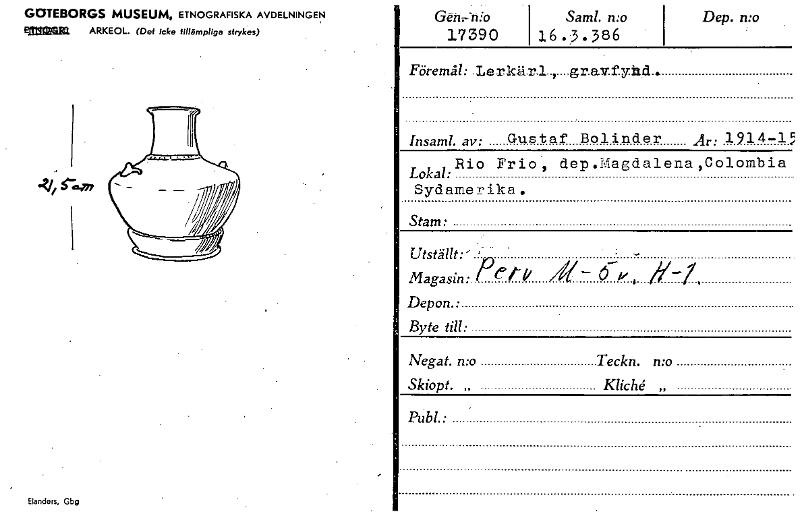 GÖTEBORGS MUSEUM, ETNOGRAFISKA AVDELNINGEN
ETNOGR. ARKEOL. (Det icke tillämpliga strykes)
21,5 cm
Elanders, Gbg
Gen. n:o Saml. n:o Dep. n:o
17390 16.3.386
Föremål: Lerkärl, gravfynd.
Insaml. av: Gustaf Bolinder År: 1914-15
Lokal: Rio Frio, dep.Magdalena,Colombia
Sydamerika.
Stam:
Utställt:
Magasin: Peru M-5 v. H-1.
Depon.:
Byte till:
Negat. n:o Teckn. n:o
Skiopt. „ Kliché „
Publ.: